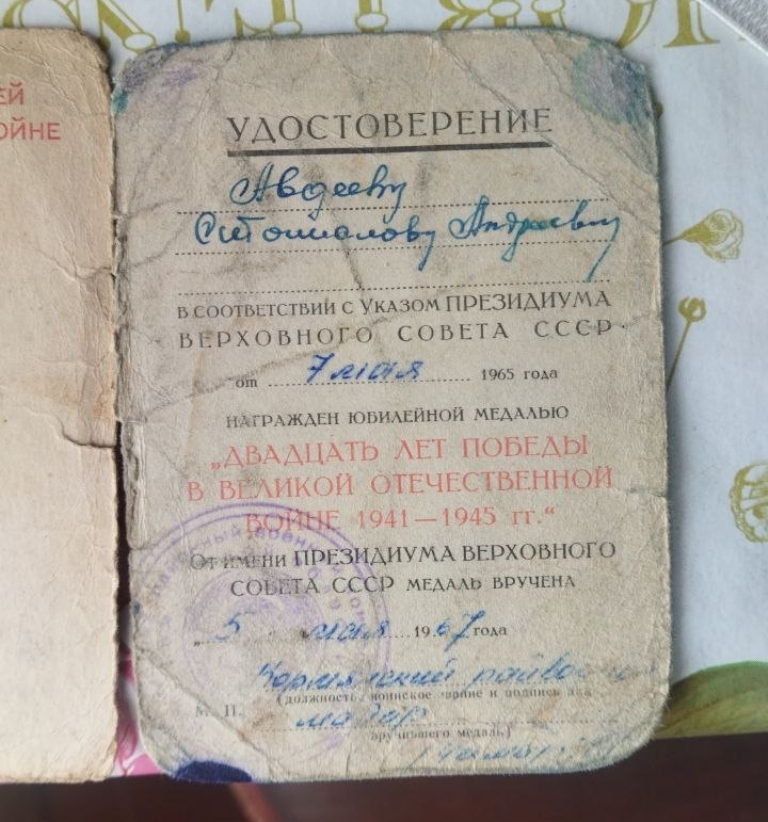 ЕЙ
ОЙНЕ
УДОСТОВЕРЕНИЕ
Авдееву
Андреевичу
В СООТВЕТСТВИИ С УКАЗОМ ПРЕЗИДИУМА
ВЕРХОВНОГО СОВЕТА СССР
от 7 мая 1965 года
НАГРАЖДЕН ЮБИЛЕЙНОЙ МЕДАЛЬЮ
„ДВАДЦАТЬ ЛЕТ ПОБЕДЫ
В ВЕЛИКОЙ ОТЕЧЕСТВЕННОЙ
ВОЙНЕ 1941—1945 гг.“
ОТ ИМЕНИ ПРЕЗИДИУМА ВЕРХОВНОГО
СОВЕТА СССР МЕДАЛЬ ВРУЧЕНА
„5 мая 1967 года
Кормянский райво
(должность, воинское звание и подпись
М. П. майор
вручившего медаль)